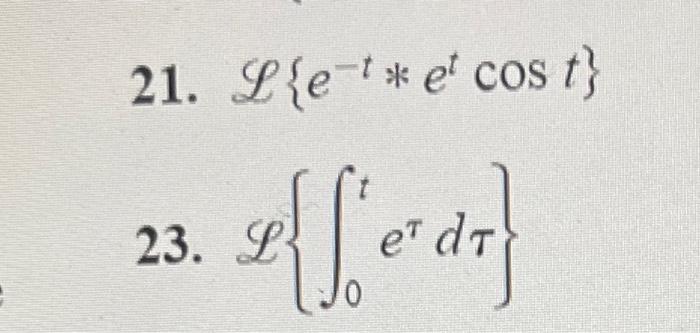 21. ℒ{e⁻ᵗ * eᵗ cos t}
23. ℒ{∫₀ᵗ e^τ dτ}